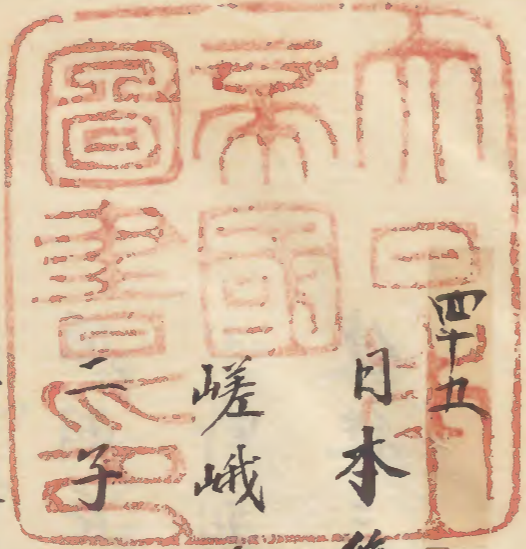 大日本
帝國
圖書印
四十五
日本
嵯峨
二子